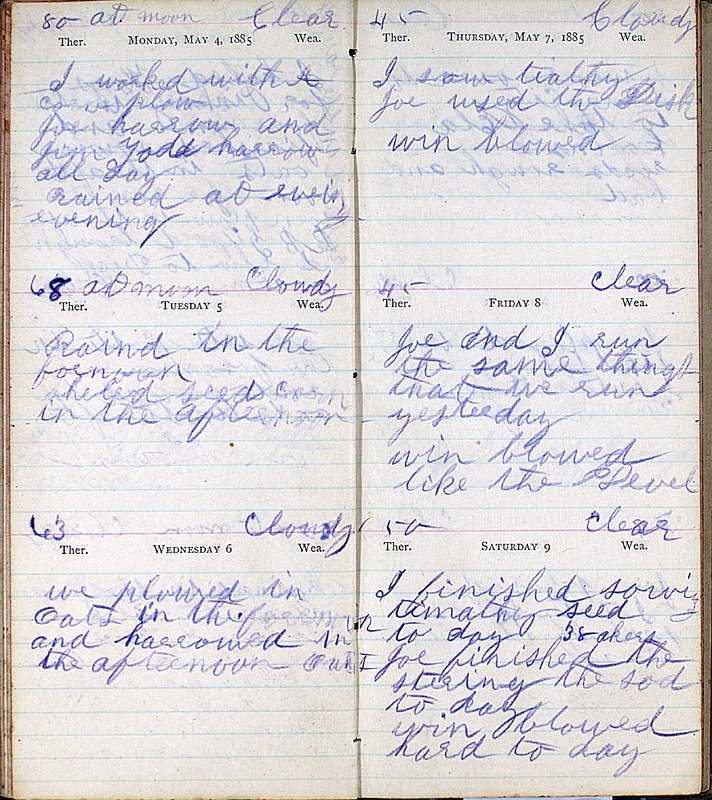 80 at noon Clear
Ther. MONDAY, MAY 4, 1885 Wea.
I worked with
plow
Joe harrow and
Jim Todd harrow
all day
rained at
evening
68 at noon Cloudy
Ther. TUESDAY 5 Wea.
Raind in the
fornoon
sheled seed corn
in the afternoon
63 Cloudy
Ther. WEDNESDAY 6 Wea.
we plowed in
Oats in the
and harrowed in
the afternoon
45 Cloudy
Ther. THURSDAY, MAY 7, 1885 Wea.
I sow
Joe used the Disk
win blowed
45 Clear
Ther. FRIDAY 8 Wea.
Joe and I run
the same things
that we run
yesteday
win blowed
like the Devel
50 Clear
Ther. SATURDAY 9 Wea.
I finished
timathy seed
to day 38 akers
Joe finished the
the sod
to day
win blowed
hard to day